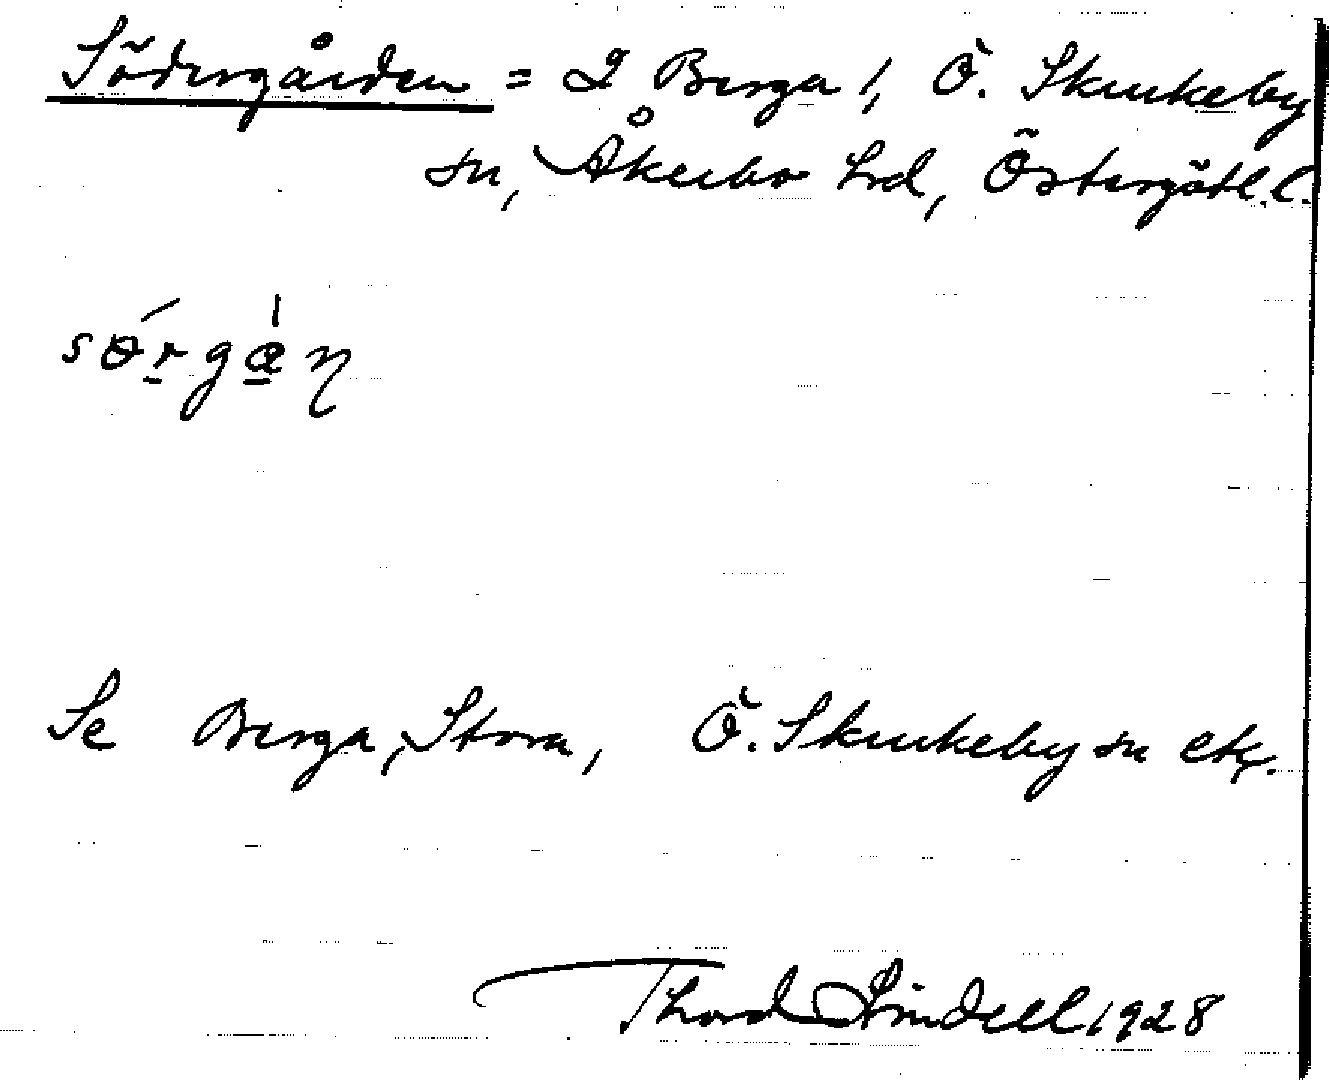 Södergården = I Berga 1, Ö. Skrukeby
sn, Åkerbo hrd, Östergötl. l.
Se Berga, Stora, Ö. Skrukeby sn etc.
Thord Lindell 1928